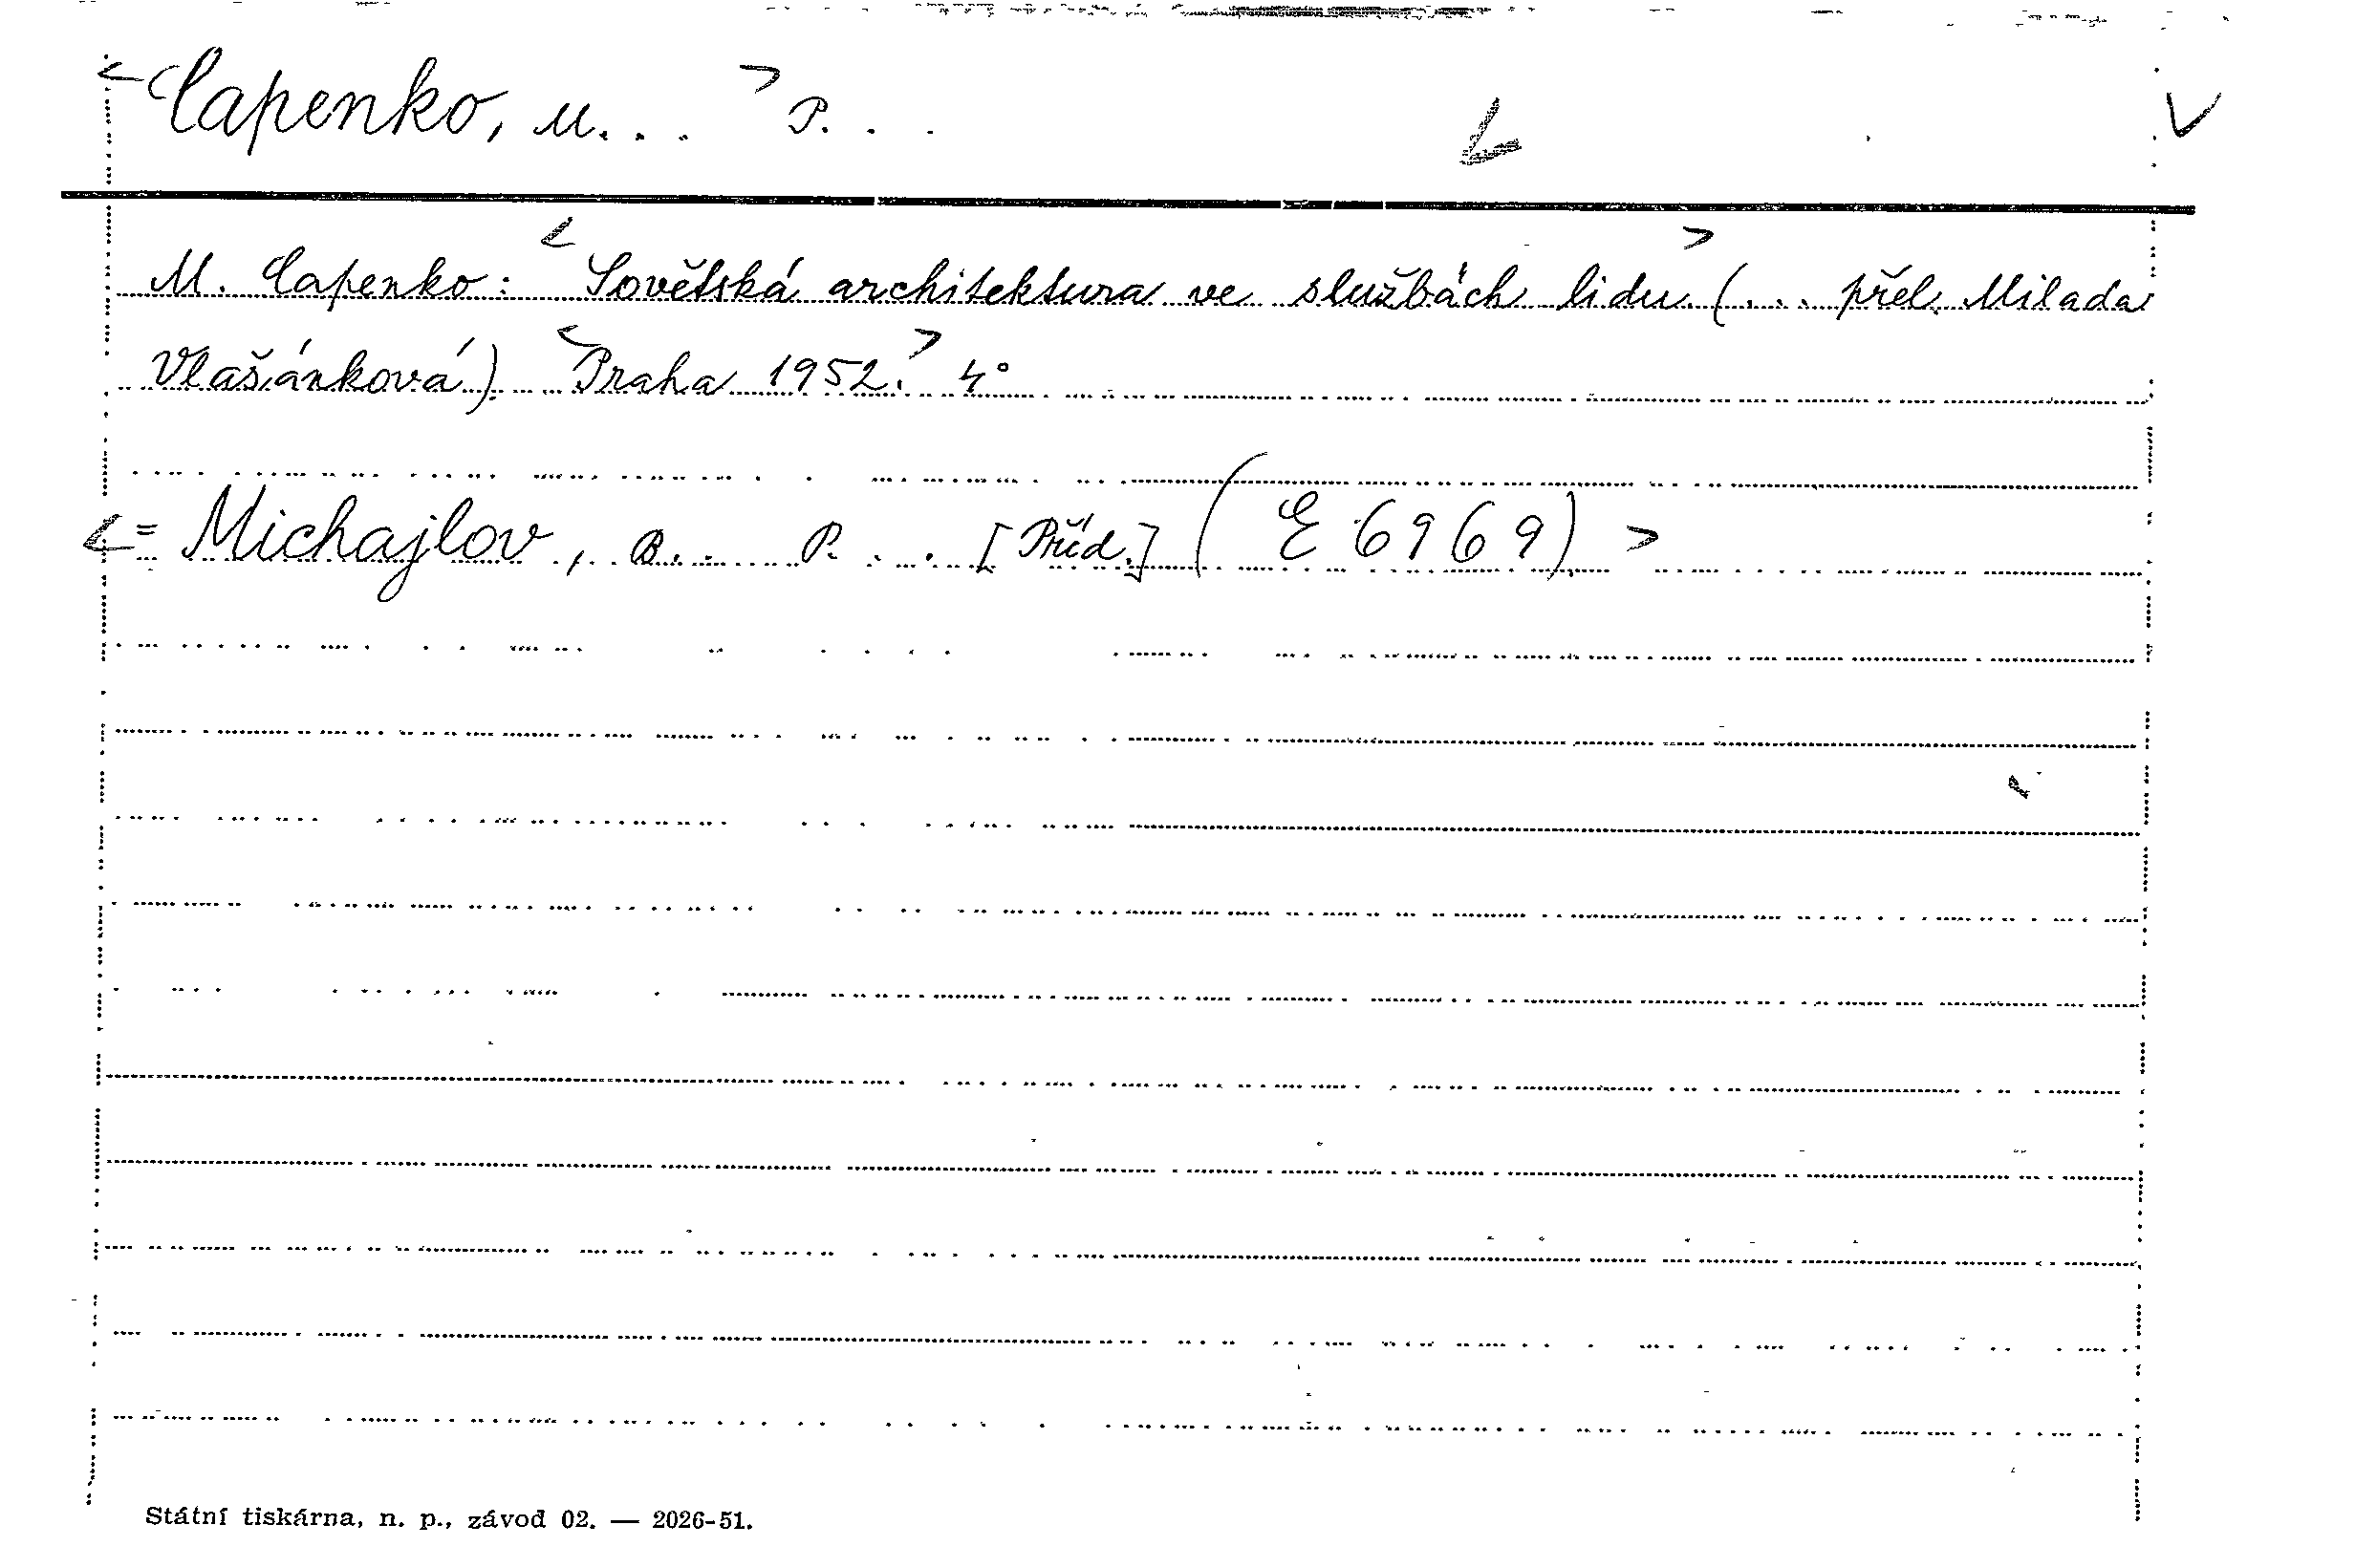 <Capenko, M. . . > P. . .
M. Capenko: <Sovětská architektura ve službách lidu> (... přel. Milada
Vlašánková). <Praha 1952.> 4°
<= Michajlov, B. . P. . . [Příd.] (E 6969) >
Státní tiskárna, n. p., závod 02. — 2026-51.